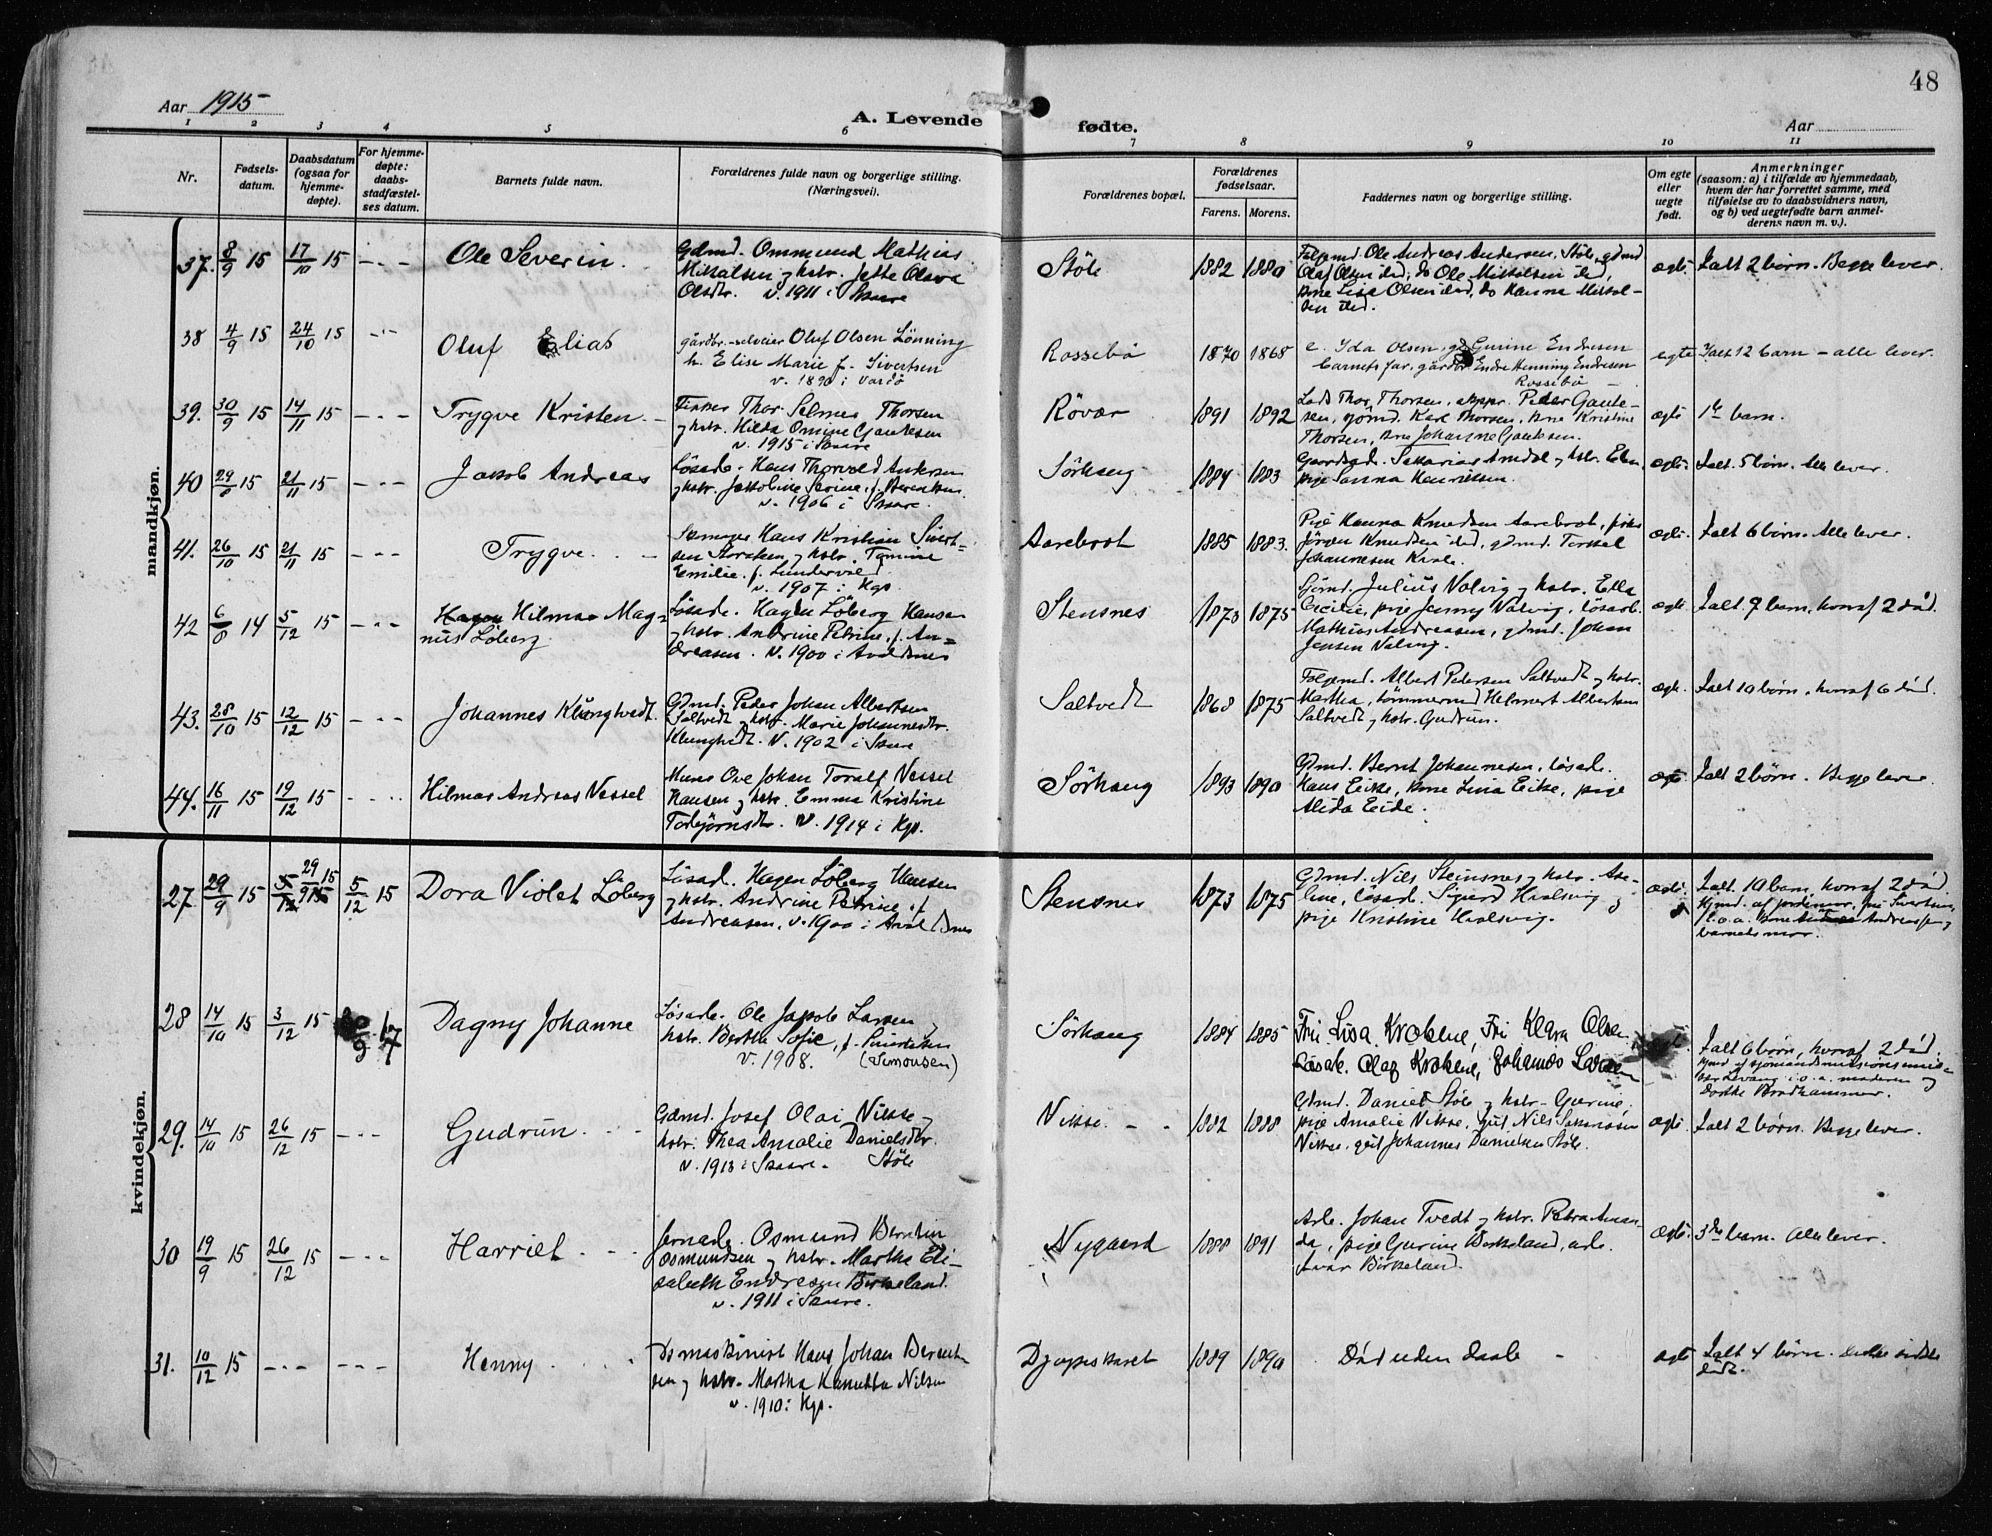 48
Aar 1915
A. Levende fødte.
Aar
1 2 3 4 5 6 7 8 9 10 11
Nr.
Fødsels-
datum.
Daabsdatum
(ogsaa for
hjemme-
døpte).
For hjemme-
døpte:
daabs-
stadfæstel-
ses datum.
Barnets fulde navn.
Forældrenes fulde navn og borgerlige stilling.
(Næringsvei).
Forældrenes bopæl.
Forældrenes
fødselsaar.
Farens. Morens.
Faddernes navn og borgerlige stilling.
Om egte
eller
uegte
født.
Anmerkninger
(saasom: a) i tilfælde av hjemmedaab,
hvem der har forrettet samme, med
tilføielse av to daabsvidners navn,
og b) ved uegtefødte barn anmel-
derens navn m. v.).
mandkjøn.
37. 8/9 15 17/10 15 - - - Ole Severin
Gdmd. Ommund Mathias
Mikkalsen og hstr.
Olsdtr. v. 1911 i Skaare
Stöle 1882 1880
Folgemd. Ole Andreas Andersen, Stöle, gdmd
Olaf Olsen ibd, do Ole Mikkalsen ibd,
kone Lisa Olsen ibd, do Hanna Mikkal-
sen ibd.
egte Ialt 2 börn. Begge lever.
38 4/9 15 24/10 15 - - Oluf Elias
gårdbr.-selveier Oluf Olsen Lönning
h. Elise Marie f. Sivertsen
v. 1890 i Vardö
Rossebö 1870 1868
e. Ida Olsen, Gurine Endresen
barnets far, gårdbr Endre Henning Endresen
Rossebö
egte Ialt 12 barn - alle lever.
39. 30/9 15 14/11 15 - - - Trygve Kristen
Fisker Thor Selmer Thorsen
og hstr. Hilda Omine Gautesen
v. 1915 i Skaare
Rövær 1891 1892
Lods Thor Thorsen, Peder Gaute-
sen, gdmd. Karl Thorsen, kone Kristine
Thorsen, kone Johanne Gautesen.
egte 1te barn.
40 29/ 15 21/11 15 - - - Jakob Andreas
Lösarb. Hans Thorvald Andersen
og hstr. Jakobine Serine, f. Berentsen
v. 1906 i Skaare.
Sörhaug 1884 1883
Sakarias Amdal og hstr.
pige Sanna Henriksen.
egte Ialt 5 börn. Alle lever.
41. 26/10 15 21/11 15 - - - Trygve.
Hans Kristian Sivert-
sen og hstr. Tomine
Emilie f.
v. 1907 i Kgs.
Aarebrot 1885 1883.
Pige Hanna Knudsen Aarebrot, fisker
Jörgen Knudsen ibd, gdmd. Torkel
Johannesen
egte Ialt 6 börn. Alle lever.
42 6/ 14 5/12 15 - - - Hilmar Mag-
nus Löberg
Lösarb. Hagen Löberg Hansen
og hstr. Andrine Petrine, f. An-
dreasen. v. 1900 i Avaldsnes
Stensnes 1873 1875
Gdmd. Julius Valvig og hstr.
Cecilie, pige Jenny Valvig, lösarb.
Mathias Andreasen, gdmd. Johan
Jensen Valvig.
egte Ialt 9 barn, hvoraf 2 död.
43. 28/10 15 12/12 15 - - - Johannes Klunghvedt.
Gdmd. Peder Johan Albertsen
Saltvedt og hstr. Marie Johannesdtr.
Klunghvedt. v. 1902 i Skaare
Saltvedt 1868 1875
Folgemd. Albert Pedersen Saltvedt og hstr.
Martha, tömmermd Helmert Albertsen
Saltvedt og hstr. Gudrun.
egte Ialt 10 börn, hvoraf 6 död.
44. 16/11 15 19/12 15 - - - Hilmar Andreas Nessel
Murer Ove Johan Toralf Nessel
Hansen og hstr. Emma Kristine
Torbjörnsdtr. v. 1914 i Kgs.
Sörhaug 1893 1890
Gdmd. Bernt Johannesen, lösarb.
Hans Eikke, kone Lina Eikke, pige
Alida Eide.
egte Ialt 2 börn. Begge lever.
kvindekjøn.
27. 29/9 15 29/9 15 5/12 15 Dora Violet Löberg
Lösarb. Hagen Löberg Hansen
og hstr. Andrine Petrine f.
Andreasen, v. 1900 i Avaldsnes
Stensnes 1873 1875
Gdmd. Nils Steinsnes og hstr. Ase-
line, lösarb. Sigurd Hvalsvig og
pige Kristine Hvalsvig.
egte Ialt 10 barn, hvoraf 2 död.
Hjmd. af jordemor, fru Sivertsen,
i. o. a. kone Andreassen og
barnets mor.
28 14/10 15 3/12 15 /9 17 Dagny Johanne
Lösarb. Ole Jakob Larsen
hstr. Berthe Sofie, f.
v. 1908. (Simonsen)
Sörhaug 1884 1885
Fru Lisa Krökene, Fru Klara Olsen
Lösarb. Olaf Krökene, Johannes Larsen
Ialt 6 börn, hvoraf 2 död.
Hjmd. af sjömandsmissionsemis-
sær i. o. a. moderen og
Dorthe Brodhammer.
29. 14/10 15 26/12 15 - - - Gudrun.
Gdmd. Josef Olai Nikse og
hstr. Thea Amalie Danielsdtr.
v. 1913 i Skaare. Stöle
Nikse. 1882 1888
Gdmd. Daniel Stöle og hstr. Gurine,
pige Amalie Nikse, gut Nils Sakariasen
Nikse, gut Johannes Danielsen Stöle.
egte. Ialt 2 börn. Begge lever.
30 19/9 15 26/12 15 - - - Harriet.
Jernarb. Osmund Berntin
Osmundsen og hstr. Marthe Eli-
sabeth Endresen Birkeland.
v. 1911 i Skaare.
Nygaard 1888 1891
Arb. Johan Tvedt og hstr. Petra Aman-
da, pige Gurine Birkeland, arb.
Ivar Birkeland.
egte. 3die barn. Alle lever.
31. 10/12 15 - - - - - - Henny
Dsmaskinist Hans Johan Berent-
sen og hstr. Martha Nilsen
v. 1910 i Kgs.
Djupaskaret 1889 1890
Död uden daab -
egte Ialt 4 börn. Dette sidste
död.